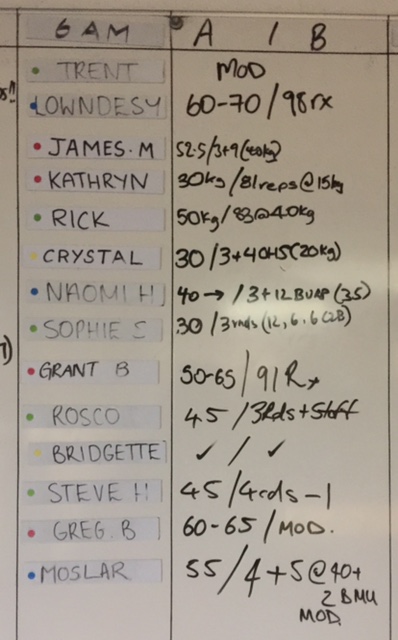 6 AM A / B
TRENT MOD
LOWNDESY 60-70 / 98rx
JAMES.M 52.5/3+9 (40kg)
KATHRYN 30kg / 81reps@15kg
RICK 50kg / 83@40kg
CRYSTAL 30 / 3+4OHS (20kg)
NAOMI H 40 → / 3+12 BURP (35)
SOPHIE S 30 / 3rnds (12, 6, 6 (28)
GRANT B 50-65 / 91 Rx
ROSCO 45 / 3Rds + Stuff
BRIDGETTE ✓ / ✓
STEVE H 45 / 4rds - 1
GREG. B 60-65 / MOD.
MOSLAR 55 / 4 + 5 @ 40+
2 BMU
MOD.